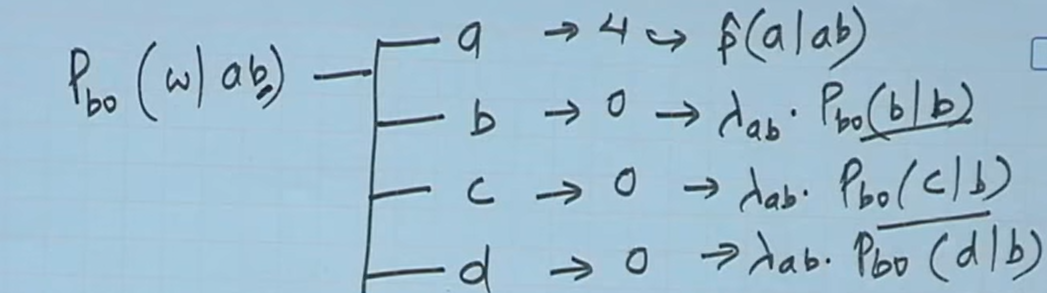 P_bo (w|ab) — a → 4 ↪ p̂(a|ab)
b → 0 → λ_ab · P_bo(b|b)
c → 0 → λ_ab · P_bo(c|b)
d → 0 → λ_ab · P_bo(d|b)